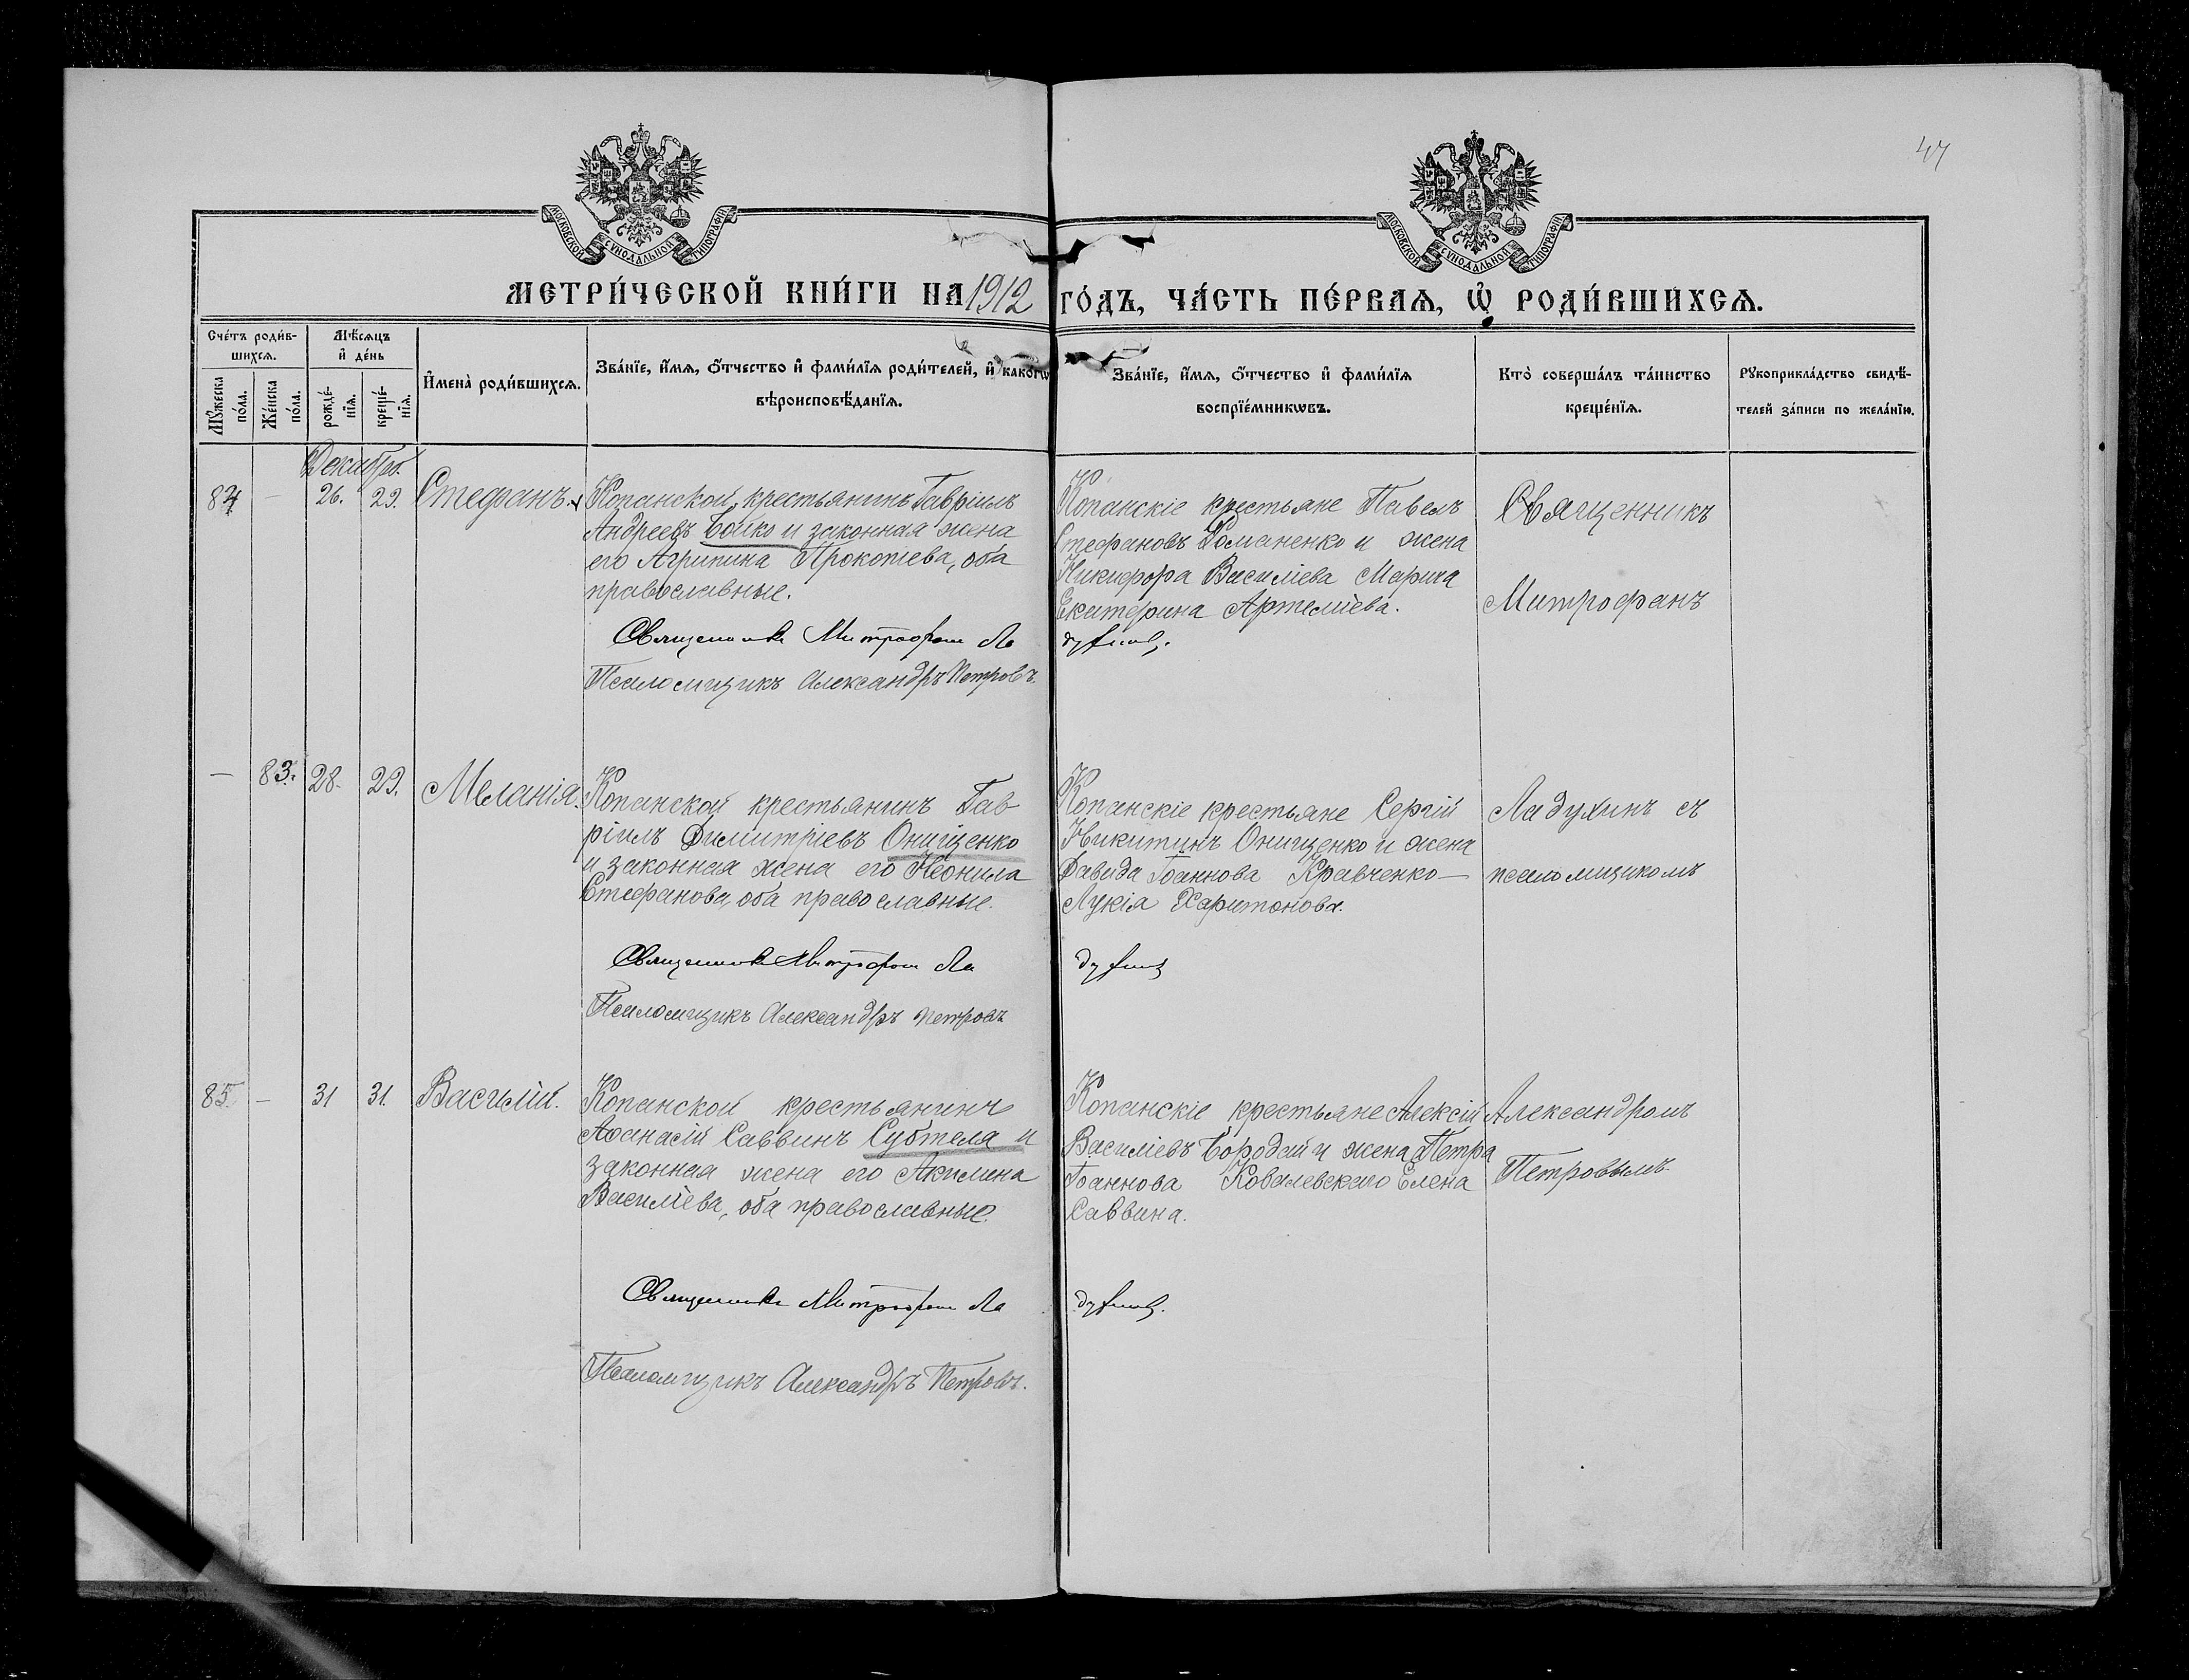 47
МОСКОВСКОЙ СѴНОДАЛЬНОЙ ТИПОГРАФІИ
МОСКОВСКОЙ СѴНОДАЛЬНОЙ ТИПОГРАФІИ
МЕТРИ́ЧЕСКОЙ КНИ́ГИ НА 1912 ГО́ДЪ, ЧА́СТЬ ПЕ́РВАѦ, Ѡ҆ РОДИ́ВШИХСѦ.
Сче́тъ роди́в-
шихсѧ.
Мѣ́сѧцъ
и҆ де́нь
Мꙋ́жеска
по́ла.
Же́нска
по́ла.
рожде́-
нїѧ.
креще́-
нїѧ.
И҆мена̀ роди́вшихсѧ.
Зва́нїе, и҆́мѧ, ѻ҆́тчество и҆ фами́лїѧ роди́телей, и҆ како́гѡ
вѣроисповѣ́данїѧ.
Зва́нїе, и҆́мѧ, ѻ҆́тчество и҆ фами́лїѧ
воспрїе́мникѡвъ.
Кто̀ соверша́лъ та́инство
креще́нїѧ.
Рꙋкоприкла́дство свидѣ́-
телей за́писи по жела́нїю.
Декабрь.
84 — 26. 29. Стефанъ.
Копанской крестьянинъ Гавріилъ
Андреевъ Бойко и законная жена
его Агрипина Прокопіева, оба
православные.
Священникъ Митрофанъ Ладухинъ.
Псаломщикъ Александръ Петровъ.
Копанскіе крестьяне Павелъ
Стефановъ Романенко и жена
Никифора Василіева
Екатерина Артеміева.
Священникъ
Митрофанъ
— 83. 28. 29. Меланія.
Копанской крестьянинъ Гав-
ріилъ Димитріевъ Онищенко
и законная жена его Неонила
Стефанова, оба православные.
Священникъ Митрофанъ Ладухинъ
Псаломщикъ Александръ Петровъ
Копанскіе крестьяне Сергій
Никитинъ Онищенко и жена
Давида Іоаннова Кравченко —
Лукія Харитонова.
Ладухинъ съ
псаломщикомъ
85. — 31 31. Василій.
Копанской крестьянинъ
Аѳанасій Саввинъ Субтеля и
законная жена его Акилина
Василіева, оба православные.
Священникъ Митрофанъ Ладухинъ.
Псаломщикъ Александръ Петровъ.
Копанскіе крестьяне Алексій
Василіевъ Бородай и жена Петра
Іоаннова Ковалевскаго Елена
Саввина.
Александромъ
Петровымъ.